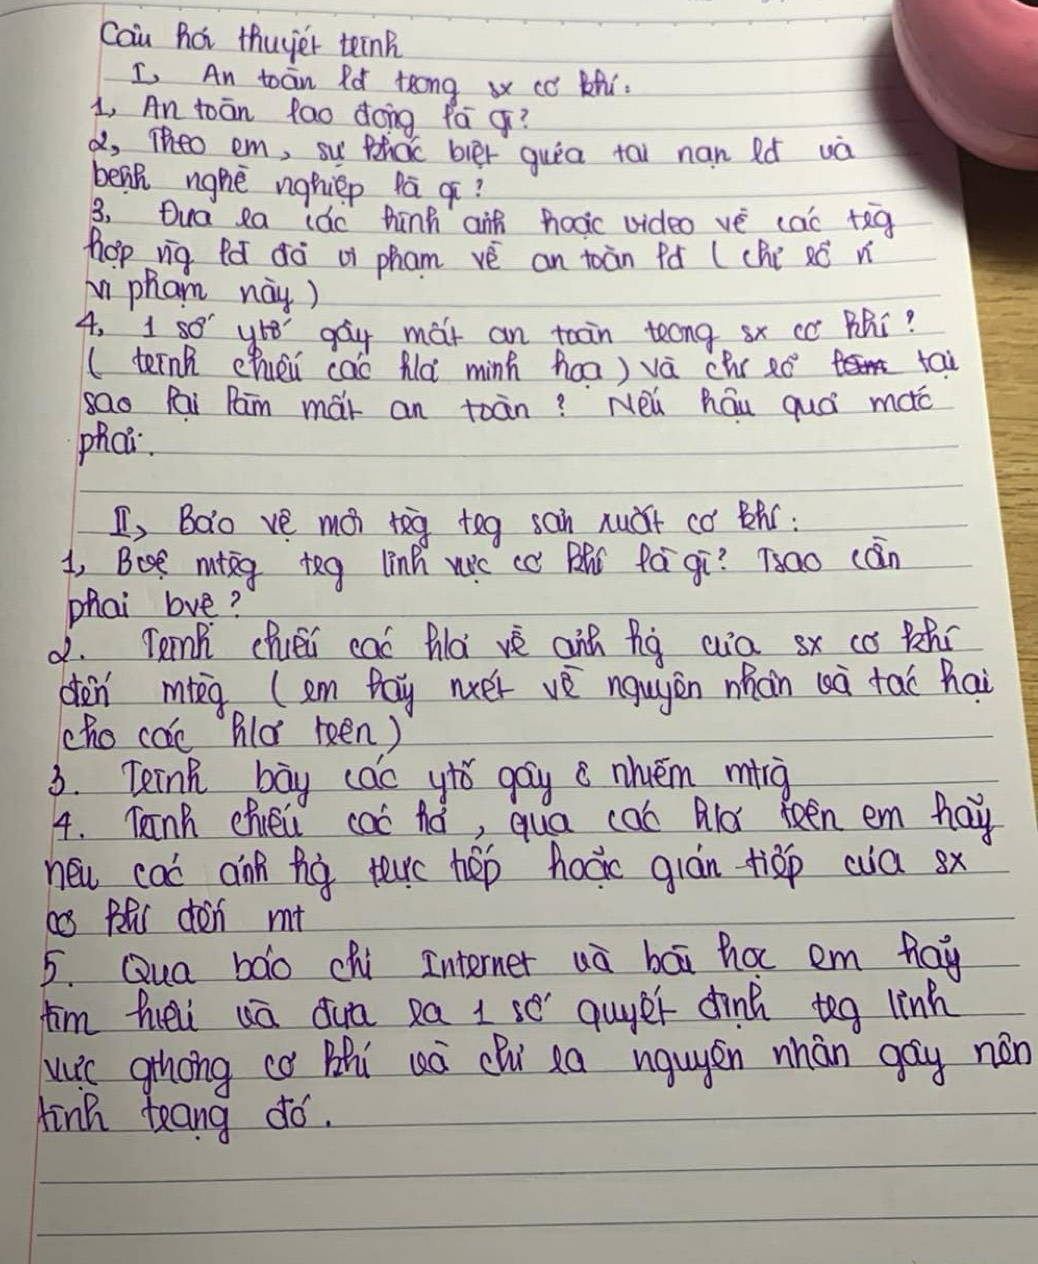 Câu hỏi thuyết trình
I, An toàn lđ trong sx cơ khí.
1, An toàn lao động là gì?
2, Theo em, sự khác biệt giữa tai nạn lđ và
bệnh nghề nghiệp là gì?
3, Đưa ra các hình ảnh hoặc video về các trg
hợp ng lđ đã vi phạm về an toàn lđ (chỉ rõ
vi phạm này)
4, 1 số ytố gây mất an toàn trong sx cơ khí?
(trình chiếu các hla minh họa) và chỉ rõ tại
sao lại làm mất an toàn? Nếu hậu quả mắc
phải.
II, Bảo vệ môi trg trg sản xuất cơ khí:
1, Bvệ mtrg trg lĩnh vực cơ khí là gì? Tsao cần
phải bvệ?
2. Trình chiếu các hla về ảnh hg của sx cơ khí
đến mtrg (em hãy nxét về nguyên nhân và tác hại
cho các hla trên)
3. Trình bày các ytố gây ô nhiễm mtrg
4. Trình chiếu các ha, qua các hla trên em hãy
nêu các ảnh hg trực tiếp hoặc gián tiếp của sx
cơ khí đến mt
5. Qua báo chí Internet và bài học em hãy
tìm hiểu và đưa ra 1 số quyết định trg lĩnh
vực gthông cơ khí và chỉ ra nguyên nhân gây nên
tình trạng đó.